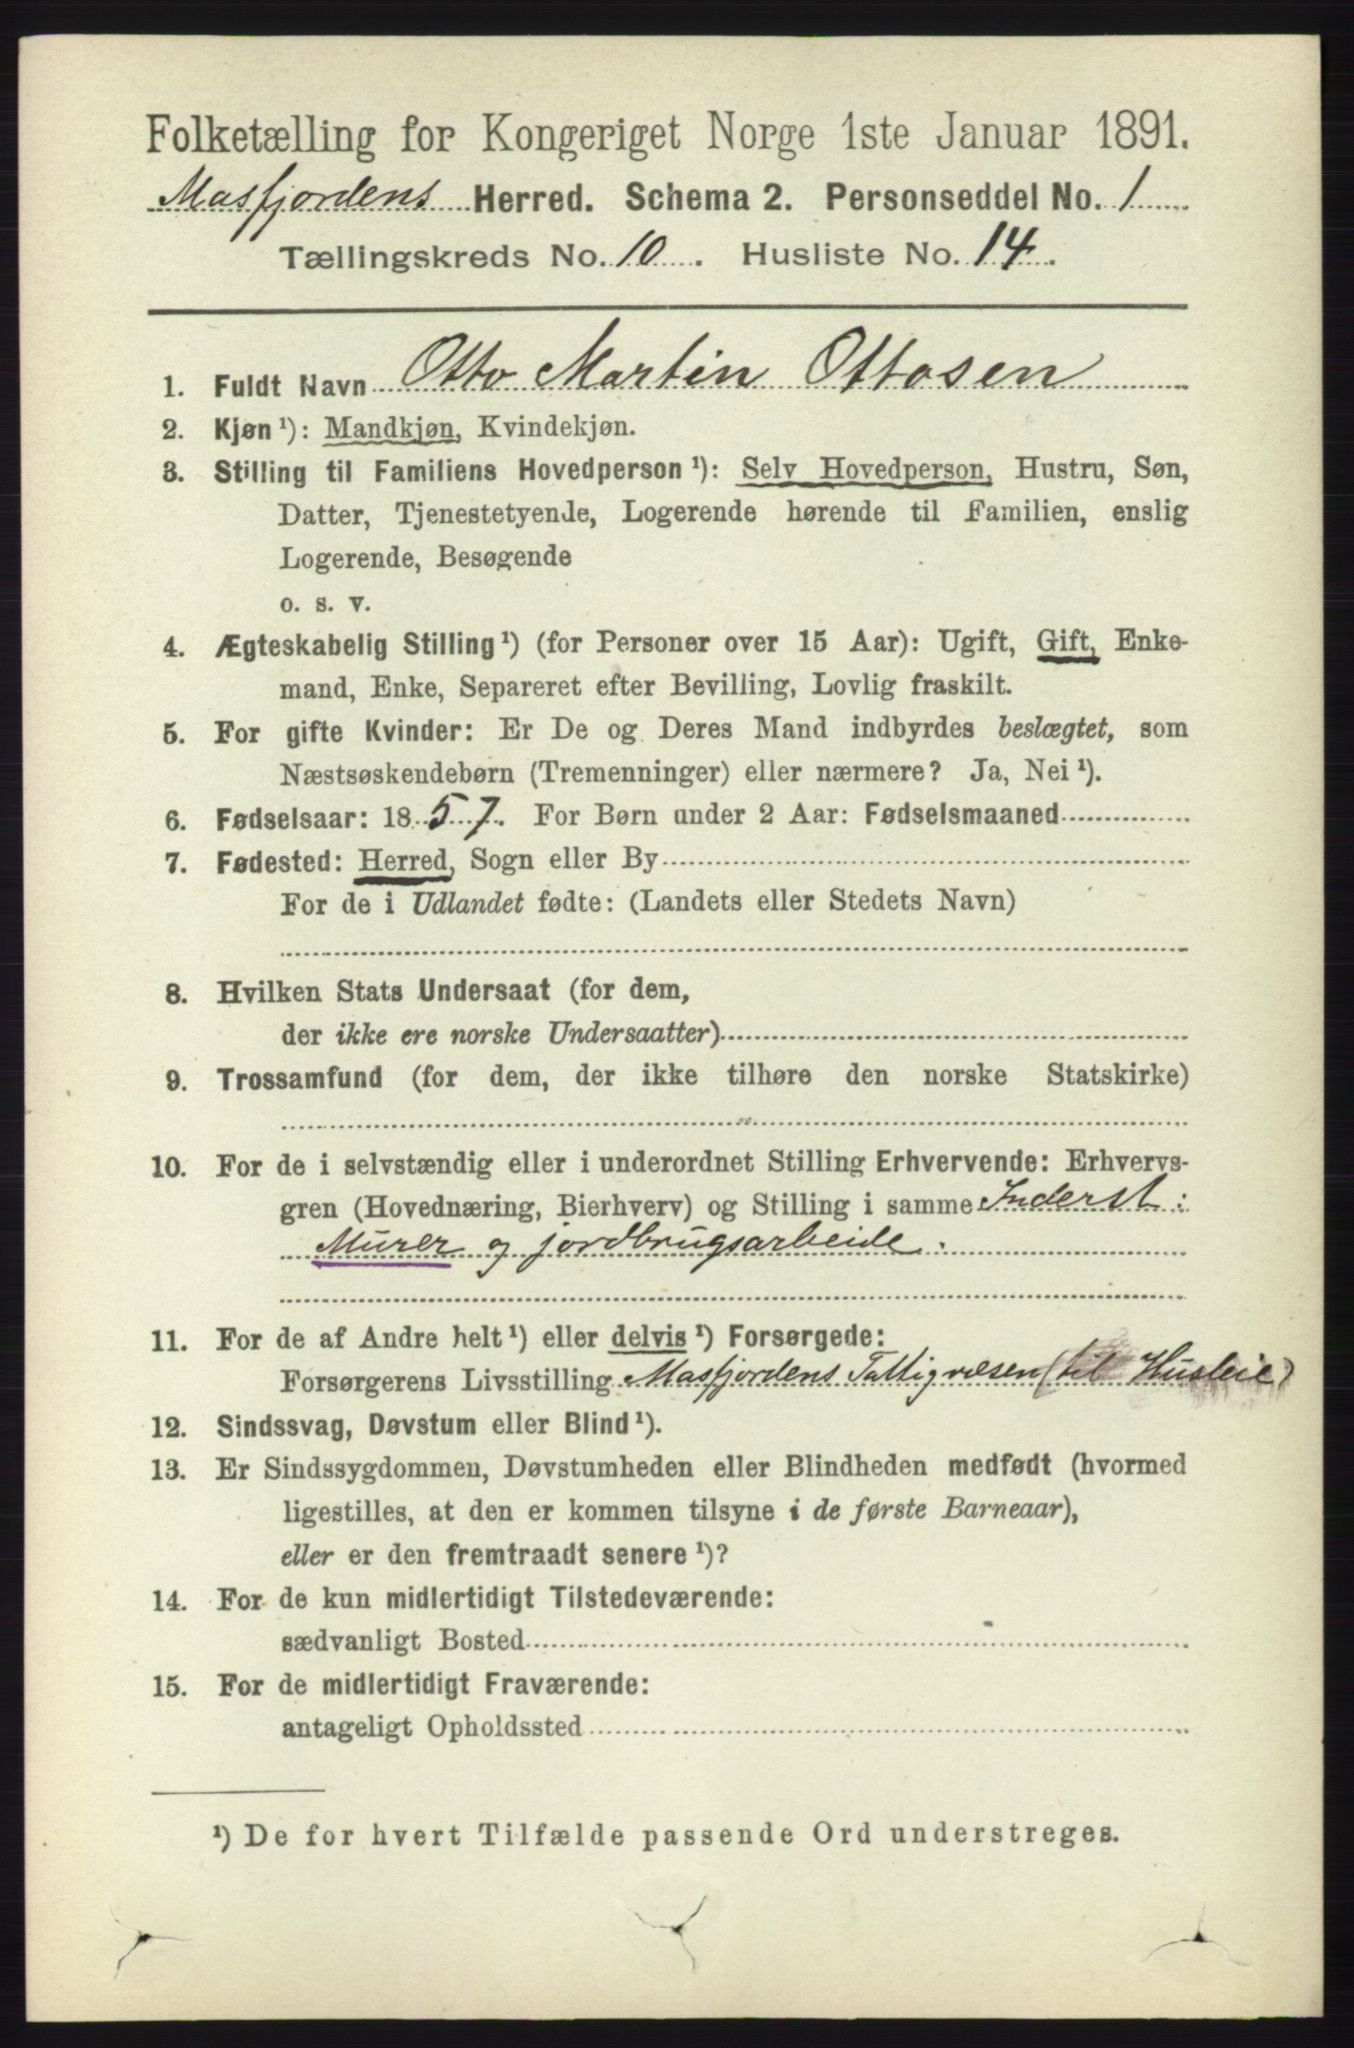 Folketælling for Kongeriget Norge 1ste Januar 1891.
Masfjordens Herred. Schema 2. Personseddel No. 1
Tællingskreds No. 10. Husliste No. 14.
1. Fuldt Navn Otto Martin Ottosen
2. Kjøn ¹): Mandkjøn, Kvindekjøn.
3. Stilling til Familiens Hovedperson ¹): Selv Hovedperson, Hustru, Søn,
Datter, Tjenestetyende, Logerende hørende til Familien, enslig
Logerende, Besøgende
o. s. v.
4. Ægteskabelig Stilling ¹) (for Personer over 15 Aar): Ugift, Gift, Enke-
mand, Enke, Separeret efter Bevilling, Lovlig fraskilt.
5. For gifte Kvinder: Er De og Deres Mand indbyrdes beslægtet, som
Næstsøskendebørn (Tremenninger) eller nærmere? Ja, Nei ¹).
6. Fødselsaar: 1857. For Børn under 2 Aar: Fødselsmaaned
7. Fødested: Herred, Sogn eller By
For de i Udlandet fødte: (Landets eller Stedets Navn)
8. Hvilken Stats Undersaat (for dem,
der ikke ere norske Undersaatter)
9. Trossamfund (for dem, der ikke tilhøre den norske Statskirke)
10. For de i selvstændig eller i underordnet Stilling Erhvervende: Erhvervs-
gren (Hovednæring, Bierhverv) og Stilling i samme Inderst:
Murer og jordbrugsarbeide.
11. For de af Andre helt ¹) eller delvis ¹) Forsørgede:
Forsørgerens Livsstilling Masfjordens Fattigvæsen (til Husleie)
12. Sindssvag, Døvstum eller Blind ¹).
13. Er Sindssygdommen, Døvstumheden eller Blindheden medfødt (hvormed
ligestilles, at den er kommen tilsyne i de første Barneaar),
eller er den fremtraadt senere ¹)?
14. For de kun midlertidigt Tilstedeværende:
sædvanligt Bosted
15. For de midlertidigt Fraværende:
antageligt Opholdssted
¹) De for hvert Tilfælde passende Ord understreges.